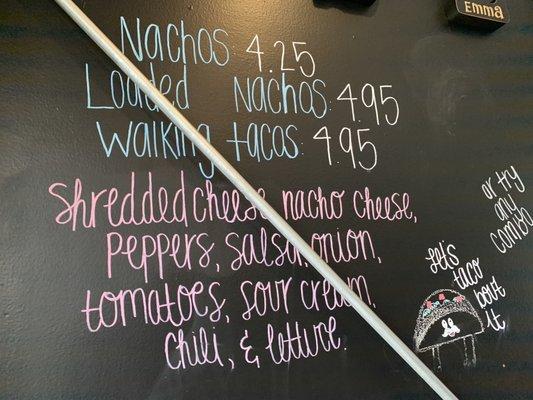 EMMA
Nachos: 4.25
Loaded Nachos: 4.95
Walking tacos: 4.95
Shredded cheese, nacho cheese,
Peppers, salsa, onion,
tomatoes, sour cream,
chili, & lettuce.
or try
any
combo
let's
taco
bout
it